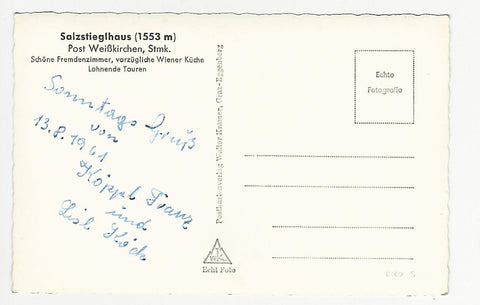 Salzstieglhaus (1553 m)
Post Weißkirchen, Stmk.
Schöne Fremdenzimmer, vorzügliche Wiener Küche
Lohnende Touren
Sonntags Gruß
von
13.8.1961
Köppl Franz
und
Lisl Köck
Postkartenverlag Walter Kramer, Graz-Eggenberg
Echte
Fotografie
WK
Echt Foto